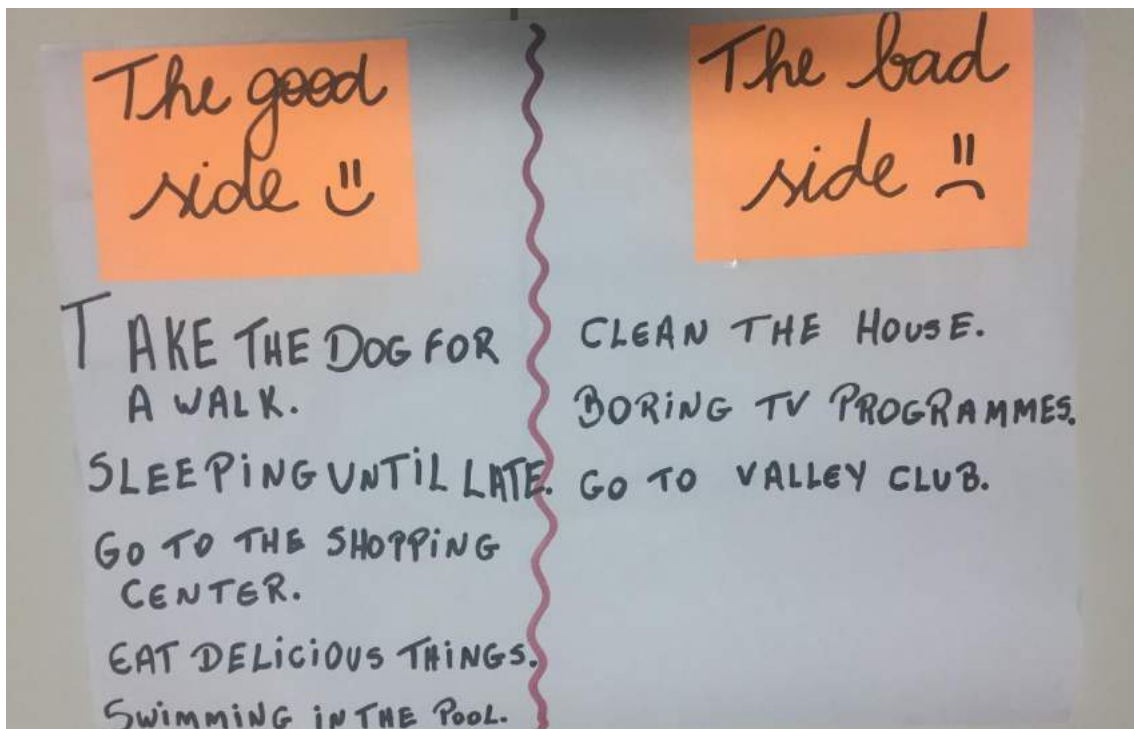 The good
side
TAKE THE DOG FOR
A WALK.
SLEEPING UNTIL LATE.
GO TO THE SHOPPING
CENTER.
EAT DELICIOUS THINGS.
SWIMMING IN THE POOL.
The bad
side
CLEAN THE HOUSE.
BORING TV PROGRAMMES.
GO TO VALLEY CLUB.